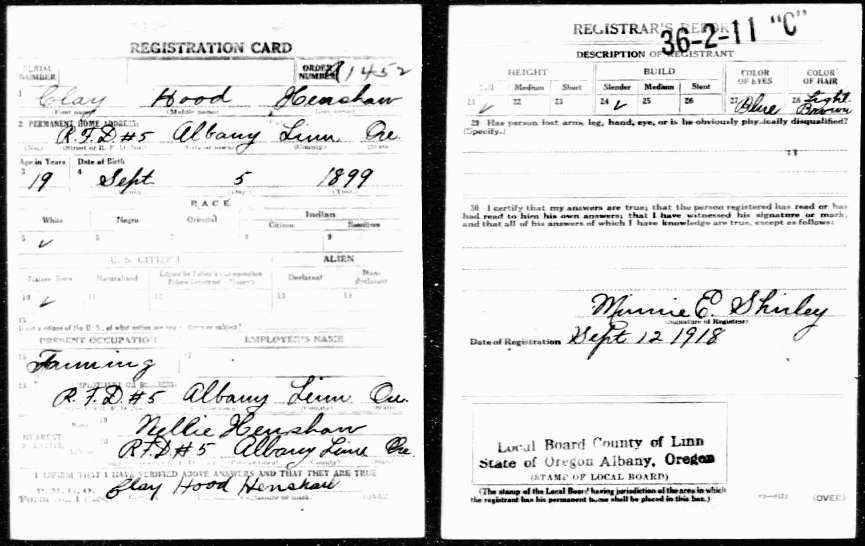 REGISTRATION CARD
SERIAL NUMBER
ORDER NUMBER 1452
1 Clay Hood Henshaw
(First name) (Middle name) (Last name)
2 PERMANENT HOME ADDRESS:
R.F.D #5 Albany Linn Ore
(No.) (Street or R. F. D. No.) (City or town) (County) (State)
Age in Years Date of Birth
3 4
19 Sept 5 1899
RACE
White Negro Oriental Indian
Citizen
5 ✓ 6 7 8 9
U. S. CITIZEN ALIEN
Native Born Naturalized Declarant Non-declarant
10 ✓ 11 12 13 14
15
PRESENT OCCUPATION EMPLOYER'S NAME
16 17
Farming
18
R.F.D. #5 Albany Linn Ore.
Name 19 Nellie Henshaw
NEAREST 20 RFD #5 Albany Linn Ore
I AFFIRM THAT I HAVE VERIFIED ABOVE ANSWERS AND THAT THEY ARE TRUE
P. M. G. O.
Form No. 1 Clay Hood Henshaw
REGISTRAR'S REPORT
36-2-11 "C"
DESCRIPTION OF REGISTRANT
HEIGHT BUILD COLOR OF EYES COLOR OF HAIR
Tall Medium Short Slender Medium Stout
21 ✓ 22 23 24 ✓ 25 26 27 Blue 28 Light Brown
29 Has person lost arm, leg, hand, eye, or is he obviously physically disqualified?
(Specify.)
30 I certify that my answers are true; that the person registered has read or has
had read to him his own answers; that I have witnessed his signature or mark,
and that all of his answers of which I have knowledge are true, except as follows:
Minnie E. Shirley
(Signature of Registrar)
Date of Registration Sept 12 1918
Local Board County of Linn
State of Oregon Albany, Oregon
(STAMP OF LOCAL BOARD)
(The stamp of the Local Board having jurisdiction of the area in which
the registrant has his permanent home shall be placed in this box.)
(OVER)